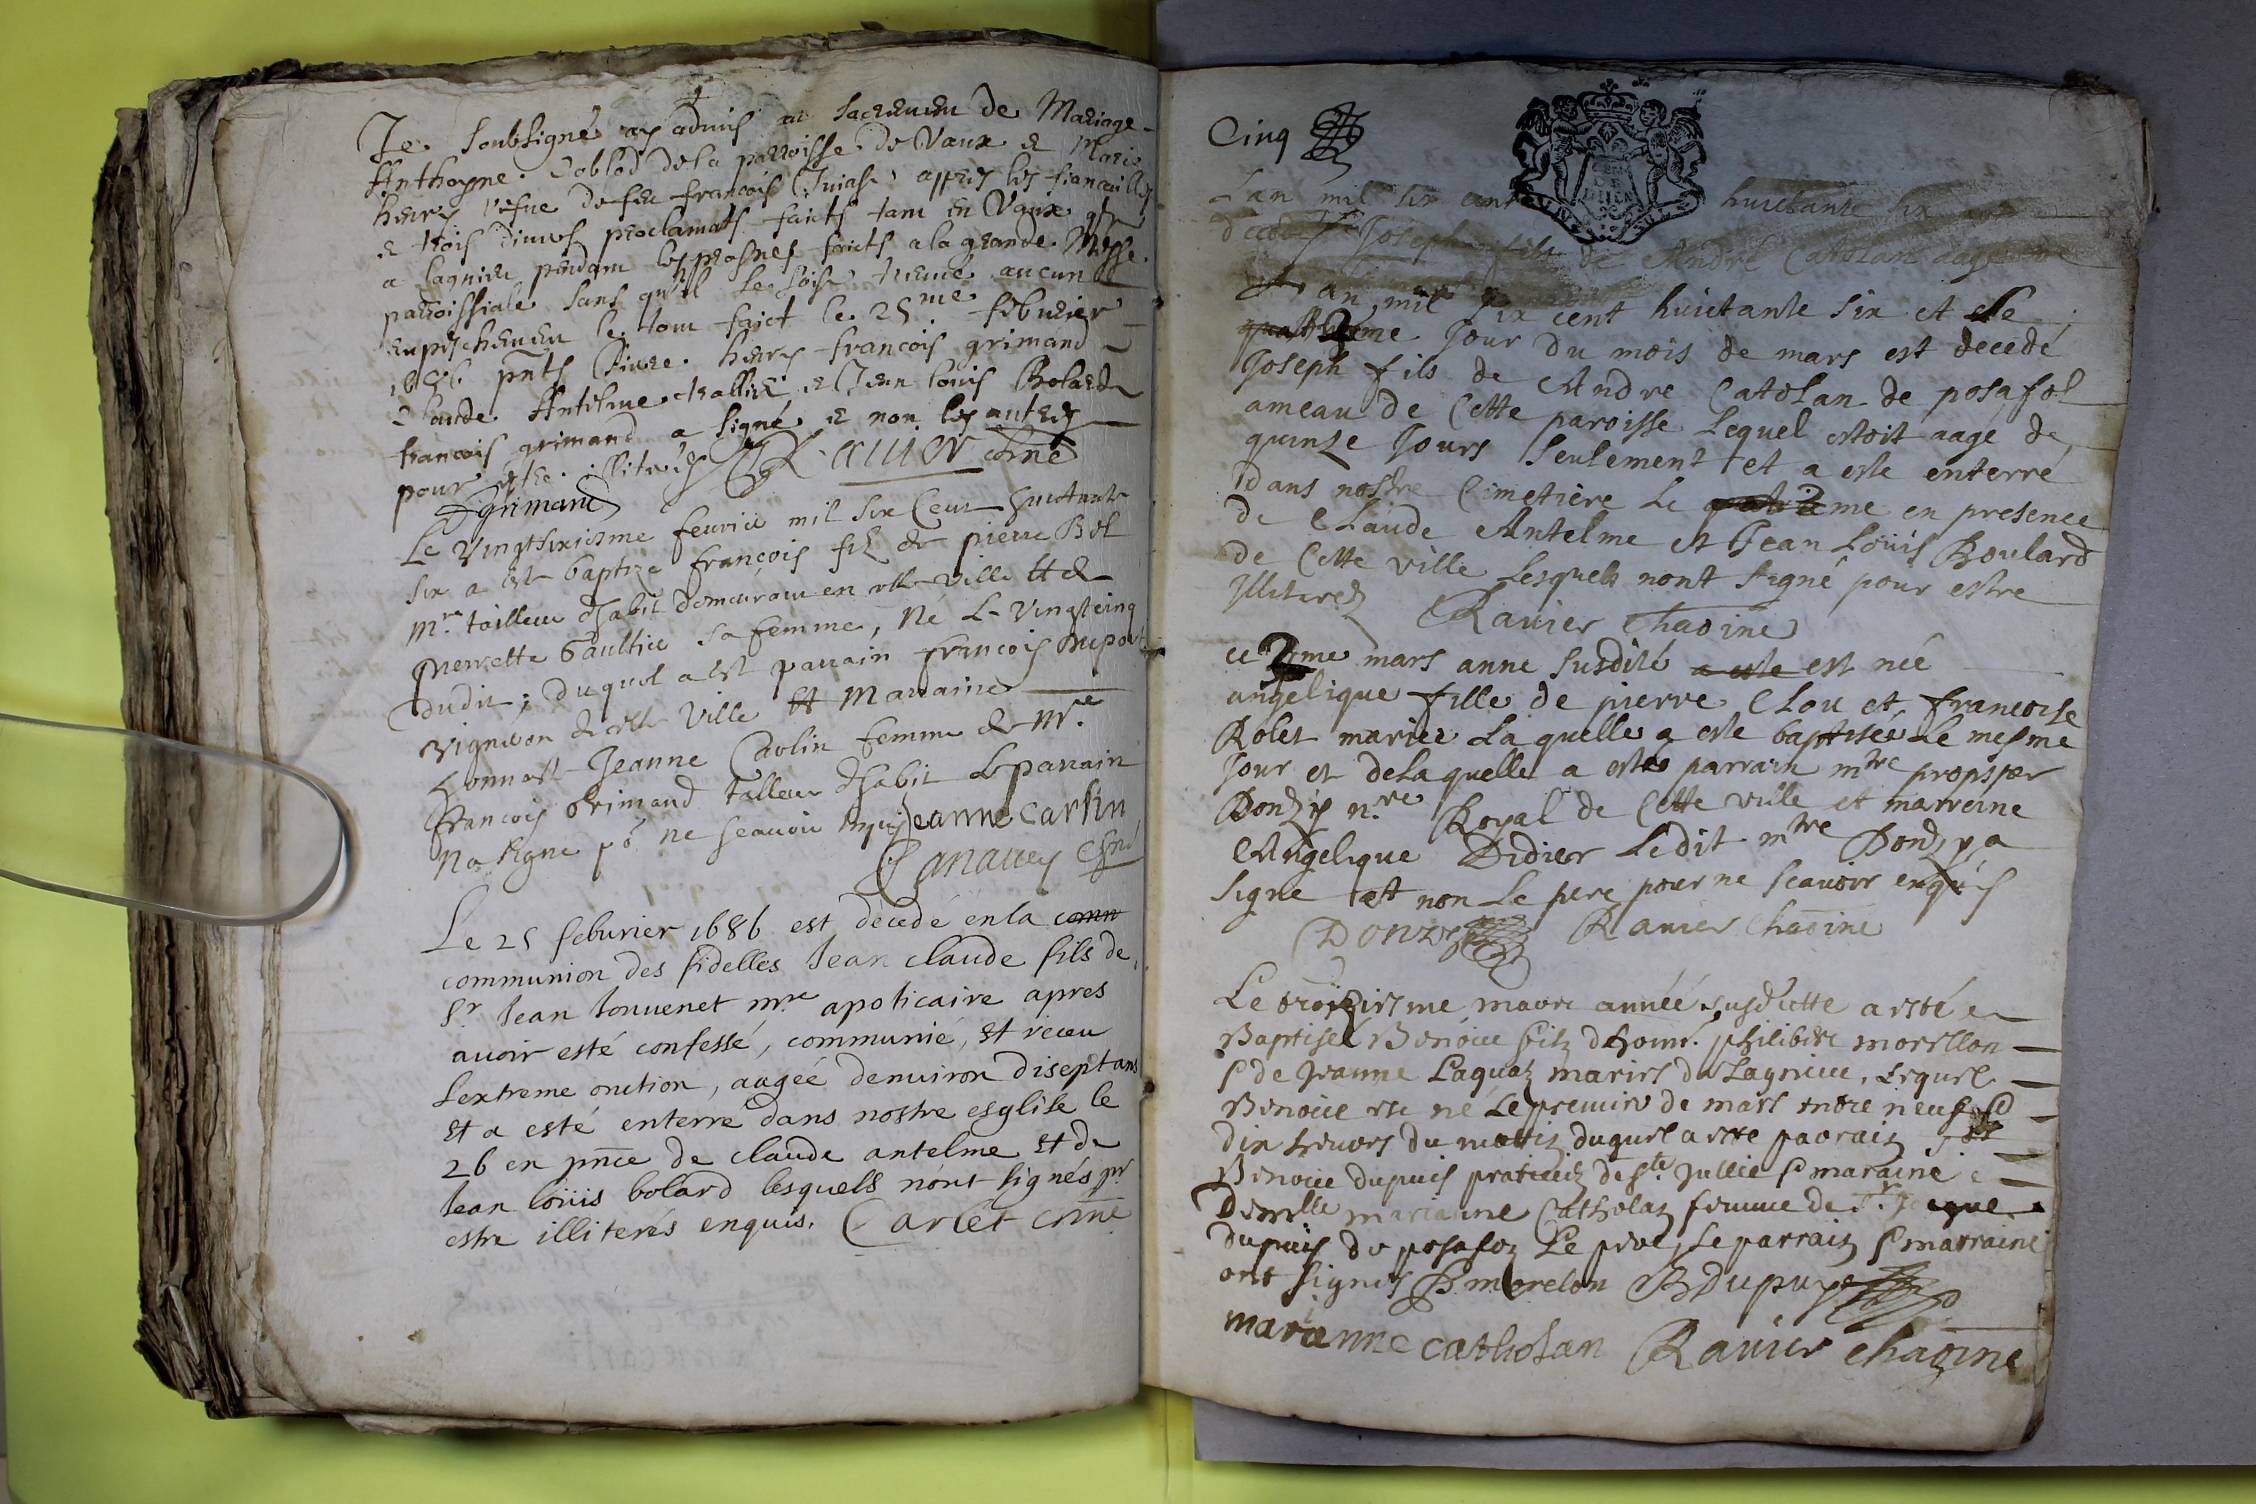 Je soubsigné ay admis au sacrement de Mariage
Anthoyne Coblod de la parroisse de Vaux et Marie
henry vefue de feu francois apres les fiancailles
et trois diuers proclamats faicts tant en Vaux que
a lagnieu pendant les prosnes faicts a la grande Messe
parroissiale sans qu'il se soist treuué aucun
empeschement le tout faict le 25me febvrier
1686 pnts Claude henry francois grimand
Claude Antelme et Jean louis Bolard
francois grimand a signé et non les autres
pour estre illiterés Rauier chne
grimand
Le vingtsixiesme feurier mil six Cent huictante
six a esté baptizé françois filz de pierre Bel
mre tailleur dhabit demeurant en cette ville Et de
pierrette Gaultier sa femme, Né Le Vingtcinq
dudit; duquel a est parrain francois Dupont
vigneron de cette Ville et Marraine
honneste Jeanne Carlin femme de Mre
François Grimand talleur dhabit Le parrain
Na signe po ne scauoir enquis Jeanne carlin
Canauey chne
Le 25 feburier 1686 est décedé en la comn
communion des fidelles Jean claude fils de
Sr Jean Jouuenet mre apoticaire apres
auoir esté confessé, communié, Et receu
L'extreme onction, aagéé denuiron diseptans
Et a esté enterré dans nostre esglise le
26 en pnce de claude antelme Et de
Jean loüis bolard lesquels n'ont signés pr
estre illiterés enquis. Carlet chne
Cinq
Lan mil six cent huictante six
decede Joseph fils de André Catolan aagé
Lan mil six cent huictante six et le
2me Jour du mois de mars est decedé
Joseph fils de Andre Catolan de posafol
ameau de Cette paroisse Lequel estoit aagé de
quinze Jours Seulement et a este enterré
dans nostre Cimetière Le 2me en presence
de Claude Antelme et Jean Loüis Boulard
de Cette ville Lesquels nont signé pour estre
Illiterez Rauier Chaoine
ce 2me mars anne susdite a este est née
angelique fille de pierre Clou et francoise
Rolet mariez Laquelle a este baptisée Le mesme
Jour et de laquelle a estée parrain mtre prospser
Donzy nre Royal de Cette ville et marreine
Angelique Didier Ledit mtre Donzy a
signe et non Le pere pour ne scauoir enquis
Donzy Rauier Chaoine
Le troisiesme mars année susditte a esté
Baptisé Benoict filz dhonn. philibert morellon
& de Jeanne Laquaz mariés de Lagnieu, Lequel
Benoict est né Le premier de mars entre neuf et
dix heures du matin duquel a esté parrain
Benoict dupuis praticien de Ste Jullie & maraine
Demlle marianne Catholan femme de Sr Jacque
dupuis de posafoz Le pere, Le parrain & marraine
ont signes P morelon B Dupuy
marianne catholan Rauier Chaoine